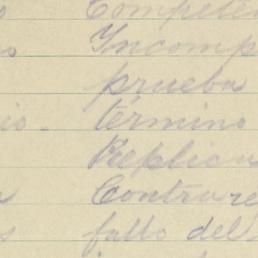 Competen
Incomp
prueba
io. término
Replica
Contrare
fallo del